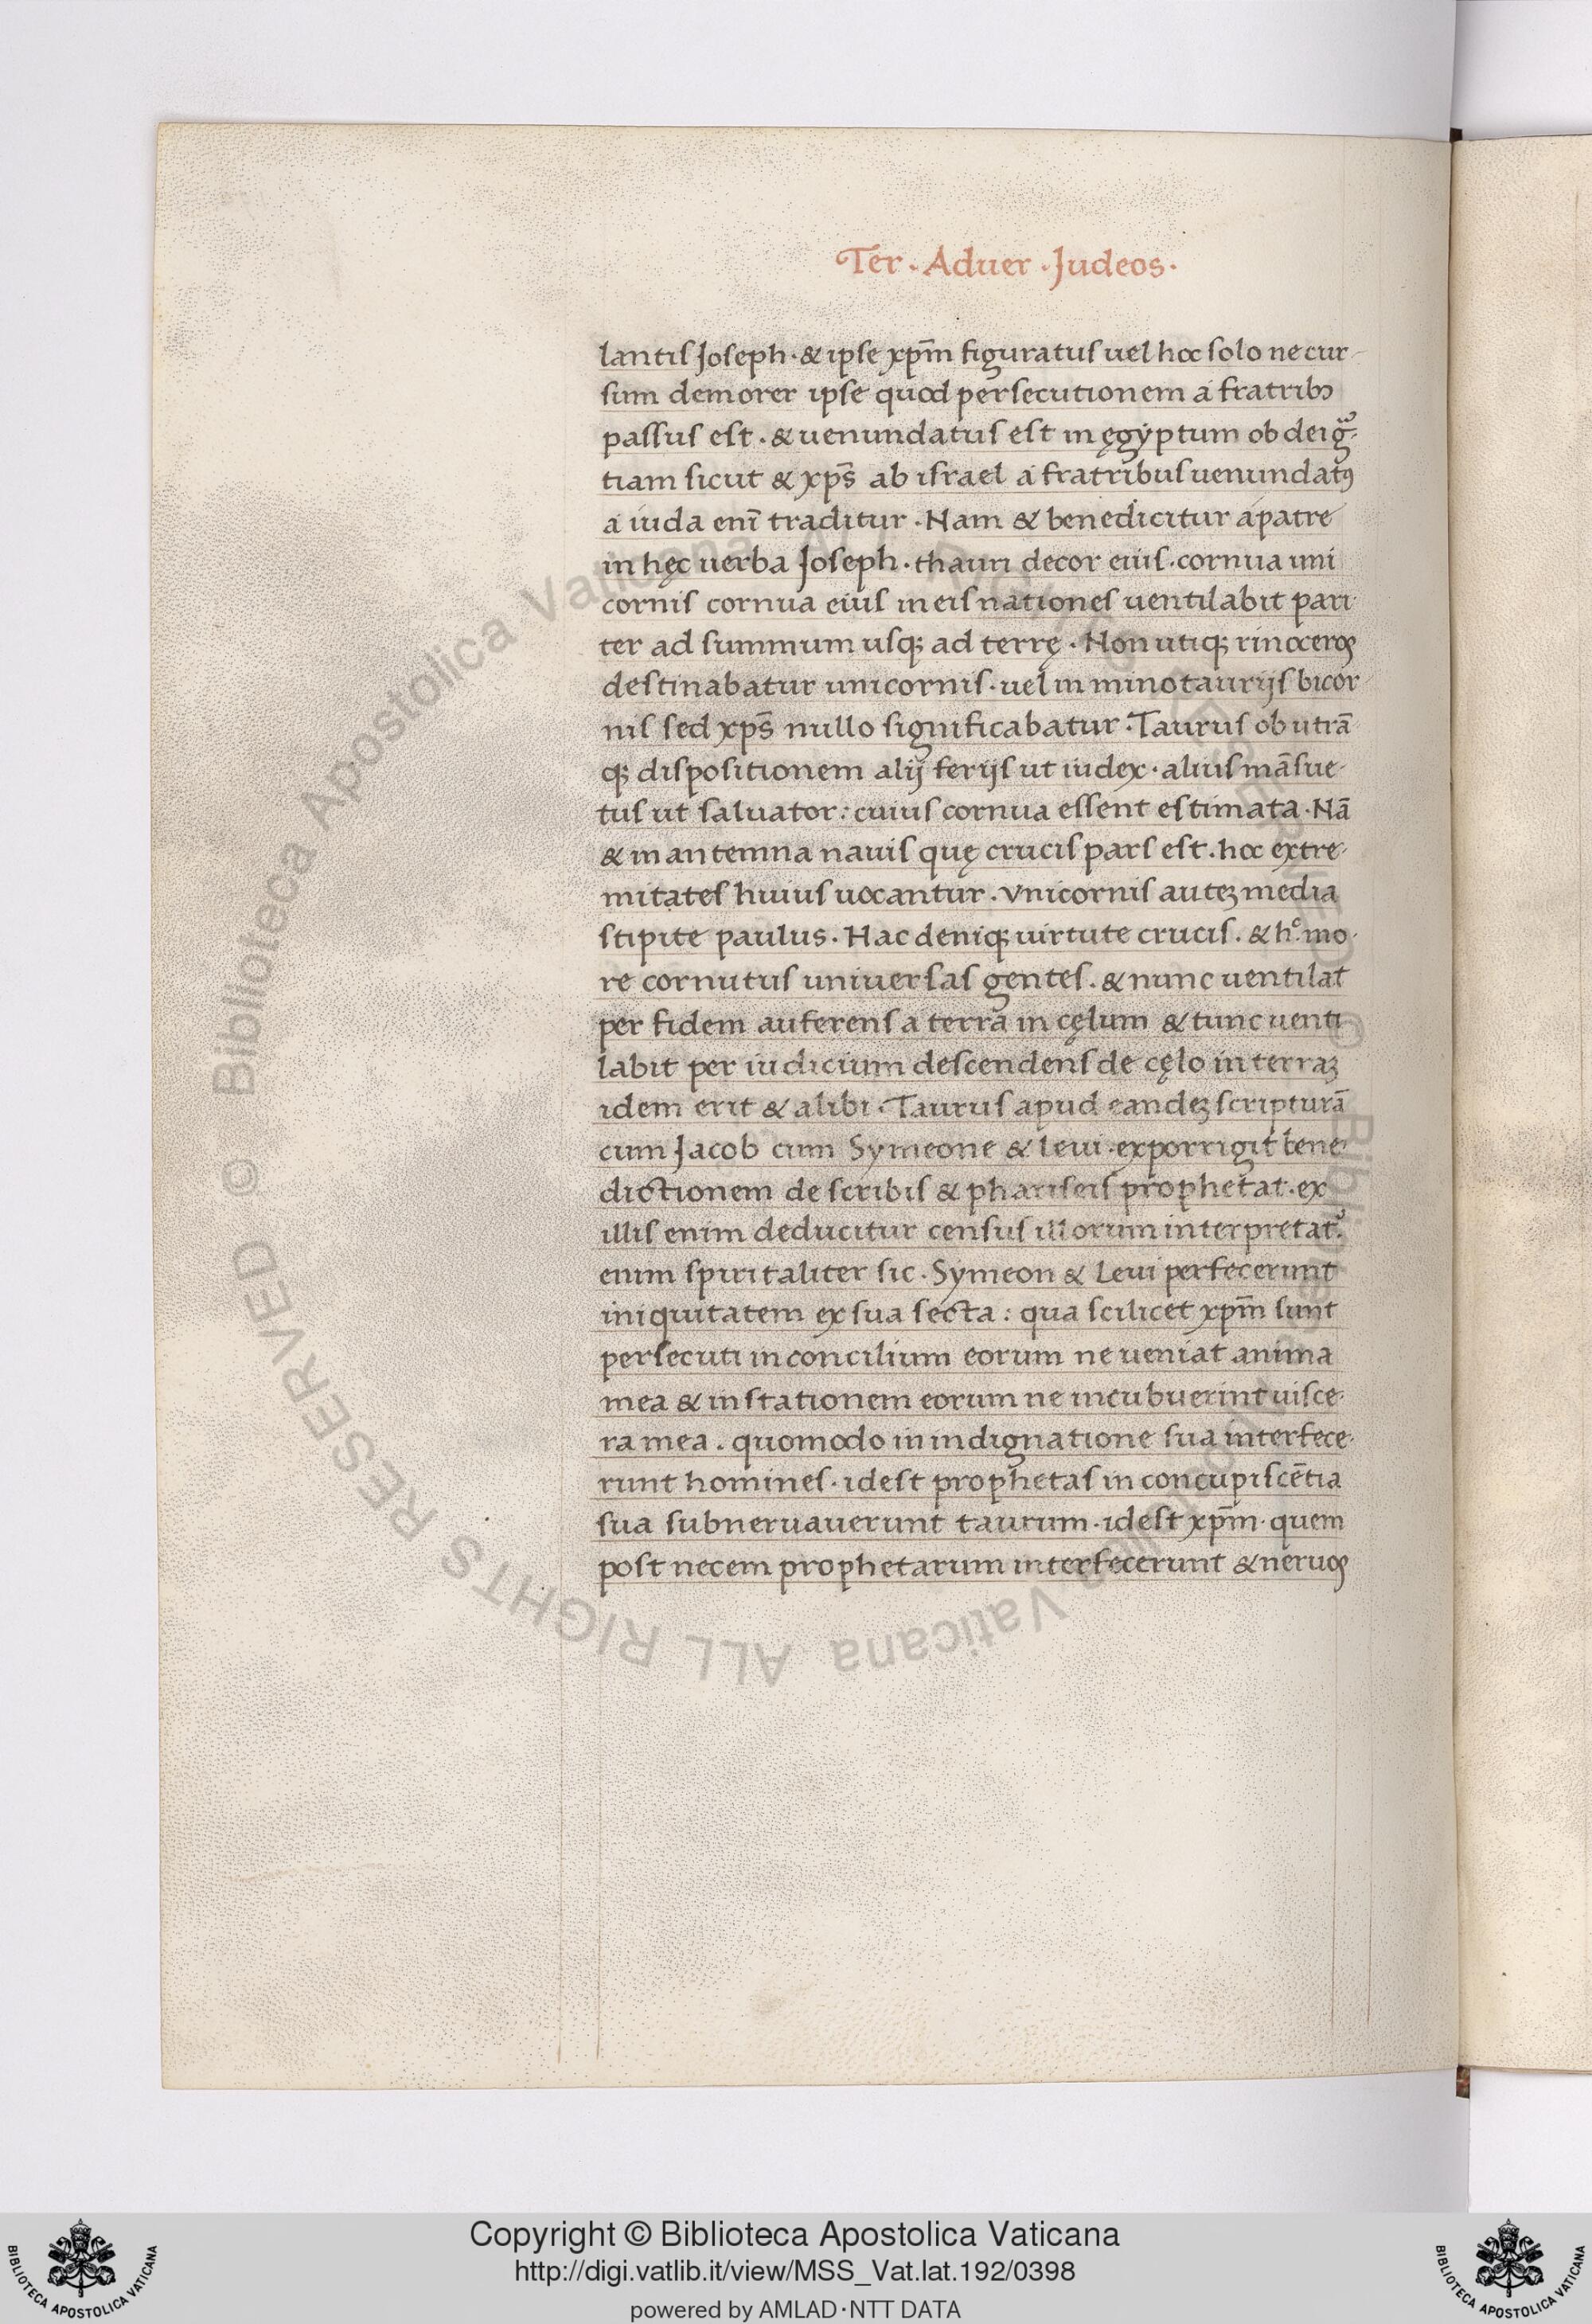 Ter · Aduer · Judeos ·
lantis Joseph · & ipse xp̄m figuratus uel hoc solo ne cur-
sum demorer ipse quod persecutionem a fratribꝫ
passus est · & uenundatus est in ęgyptum ob dei gr̄a-
tiam sicut & xp̄s ab israel a fratribus uenundatꝰ
a iuda eni᷃ traditur · Nam & benedicitur a patre
in hęc uerba Joseph · thauri decor eius · cornua uni
cornis cornua eius in eis nationes uentilabit pari-
ter ad summum usqꝫ ad terrę · Non utiqꝫ rinoceros
destinabatur unicornis · uel in minotaurijs bicor
nis sed xp̄s nullo significabatur · Taurus ob utrā
qꝫ dispositionem alij ferijs ut iudex · alius māsue-
tus ut saluator : cuius cornua essent estimata · Nā
& in antemna nauis quę crucis pars est · hoc extre-
mitates huius uocantur · Vnicornis auteꝫ media
stipite paulus · Hac deniqꝫ uirtute crucis · & hͦ · mo-
re cornutus uniuersas gentes · & nunc uentilat
per fidem auferens a terra in cęlum & tunc uenti
labit per iudicium descendens de cęlo in terraꝫ
idem erit & alibi · Taurus apud eandeꝫ scripturā
cum Jacob cum Symeone & Leui · exporrigit bene-
dictionem de scribis & phariseis prophetat · ex
illis enim deducitur census illorum interpretat᷑
enim spiritaliter sic · Symeon & Leui perfecerunt
iniquitatem ex sua secta : qua scilicet xp̄m sunt
persecuti in concilium eorum ne ueniat anima
mea & in stationem eorum ne incubuerint uisce-
ra mea · quomodo in indignatione sua interfece-
runt homines · idest prophetas in concupiscētia
sua subneruauerunt taurum · idest xp̄m · quem
post necem prophetarum interfecerunt & neruos
© Biblioteca Apostolica Vaticana ALL RIGHTS RESERVED
Copyright © Biblioteca Apostolica Vaticana
http://digi.vatlib.it/view/MSS_Vat.lat.192/0398
powered by AMLAD·NTT DATA
BIBLIOTECA APOSTOLICA VATICANA
BIBLIOTECA APOSTOLICA VATICANA